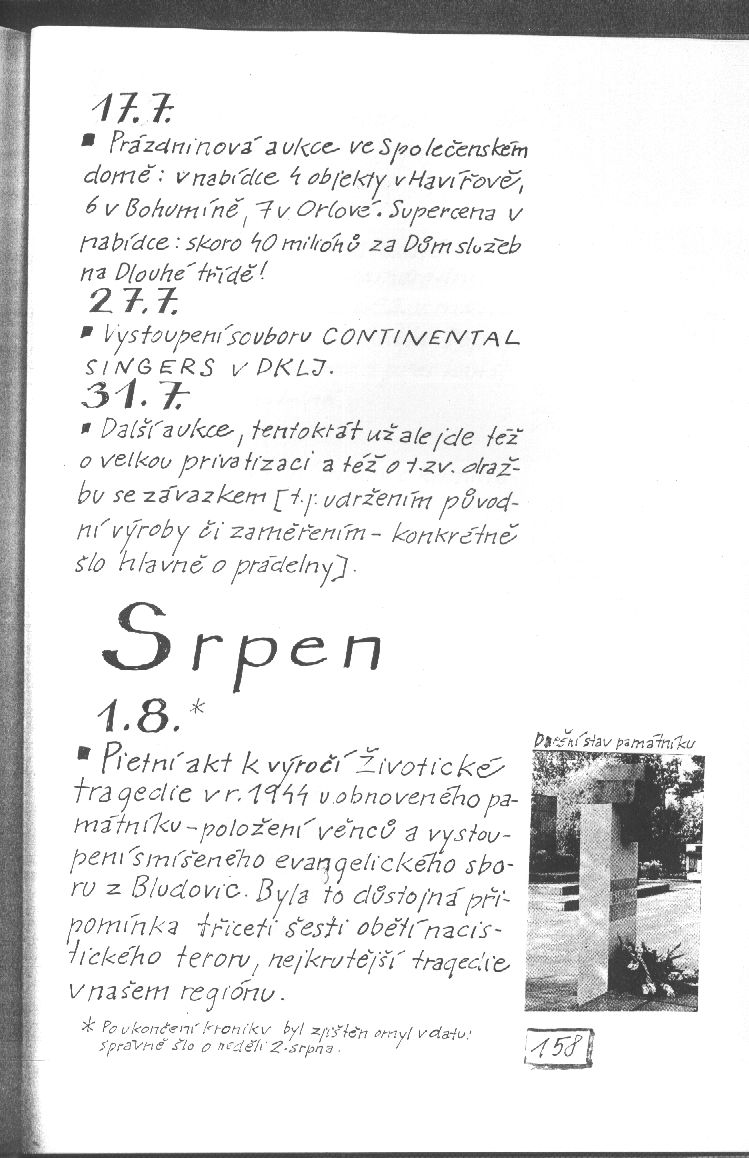 17.7.
▪ Prázdninová aukce ve Společenském
domě: v nabídce 4 objekty v Havířově,
6 v Bohumíně, 7 v Orlové. Supercena v
nabídce: skoro 40 miliónů za Dům služeb
na Dlouhé třídě!
27.7.
▪ Vystoupení souboru CONTINENTAL
SINGERS v DKLJ.
31.7.
▪ Další aukce, tentokrát už ale jde též
o velkou privatizaci a též o t.zv. draž-
bu se závazkem [t.j. udržením původ-
ní výroby či zaměřením - konkrétně
šlo hlavně o prádelny].
Srpen
1.8.*
▪ Pietní akt k výročí Životické
tragedie v r. 1944 u obnoveného pa-
mátníku - položení věnců a vystou-
pení smíšeného evangelického sbo-
ru z Bludovic. Byla to důstojná při-
pomínka třiceti šesti obětí nacis-
tického teroru, nejkrutější tragedie
v našem regiónu.
* Po ukončení kroniky byl zjištěn omyl v datu:
správně šlo o neděli 2. srpna.
Dnešní stav památníku
158